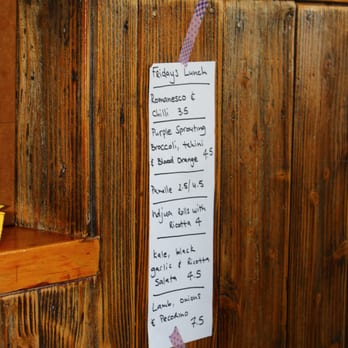 Fridays Lunch
Romanesco &
Chilli 3.5
Purple Sprouting
Broccoli, tehini
& Blood Orange 4.5
Panelle 2.5/4.5
Ndjua Rolls with
Ricotta 4
Kale, black
garlic & Ricotta
Salata 4.5
Lamb, onions
& Pecorino 7.5